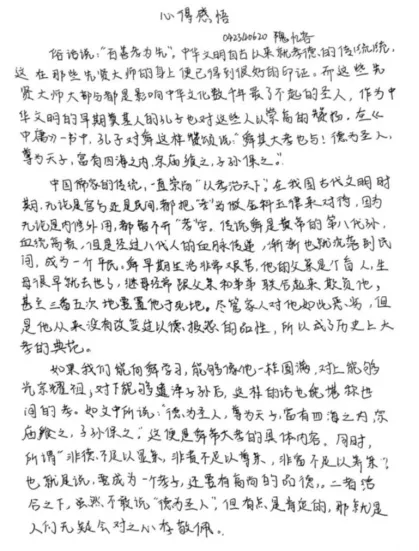 心得感悟
0423110620
俗话说：“百善孝为先”。中华文明自古以来就孝德的传统，
这在那些先贤大师的身上便已得到很好的印证。而这些先
贤大师大都与都是影响中华文化数千年最了不起的圣人，作为中
华文明的早期奠基人的孔子也对这些人以崇高的赞扬。在《
中庸》一书中，孔子对舜这样赞颂说：“舜其大孝也与！德为圣人，
尊为天子，富有四海之内，宗庙飨之，子孙保之。”
中国儒家的传统，一直崇尚“以孝治天下”，在我国古代文明时
期，无论是官方还是民间，都把“孝”当做金科玉律来对待，因为
无论是内修外用，都离不开“孝”字。传说舜是黄帝的第八代孙，
血统高贵，但是经过八代人的血脉传递，渐渐也就沦落到民
间，成为一个平民。舜早期生活非常艰苦，他的父亲是个盲人，生
母很早就去世了，继母经常跟父亲和弟弟联合起来欺负他，
甚至三番五次地要置他于死地。尽管家人对他如此恶劣，但
是他从来没有改变过以德报怨的品性，所以成了历史上大
孝的典范。
如果我们能向舜学习，能够像他一样圆满，对上能够
光宗耀祖，对下能够遗泽子孙后，这样的话也能堪称世
间的孝。如文中所说：“德为圣人，尊为天子，富有四海之内，宗
庙飨之，子孙保之。”这便是舜帝大孝的具体内容。同时，
所谓“非德不足以显亲，非贵不足以尊亲，非富不足以养亲”？
也就是说，要成为一个孝子，还要有高尚的品德，。二者结
合之下，虽然不敢说“德为圣人”，但有点是肯定的，那就是
人们无疑会对之心存敬佩。